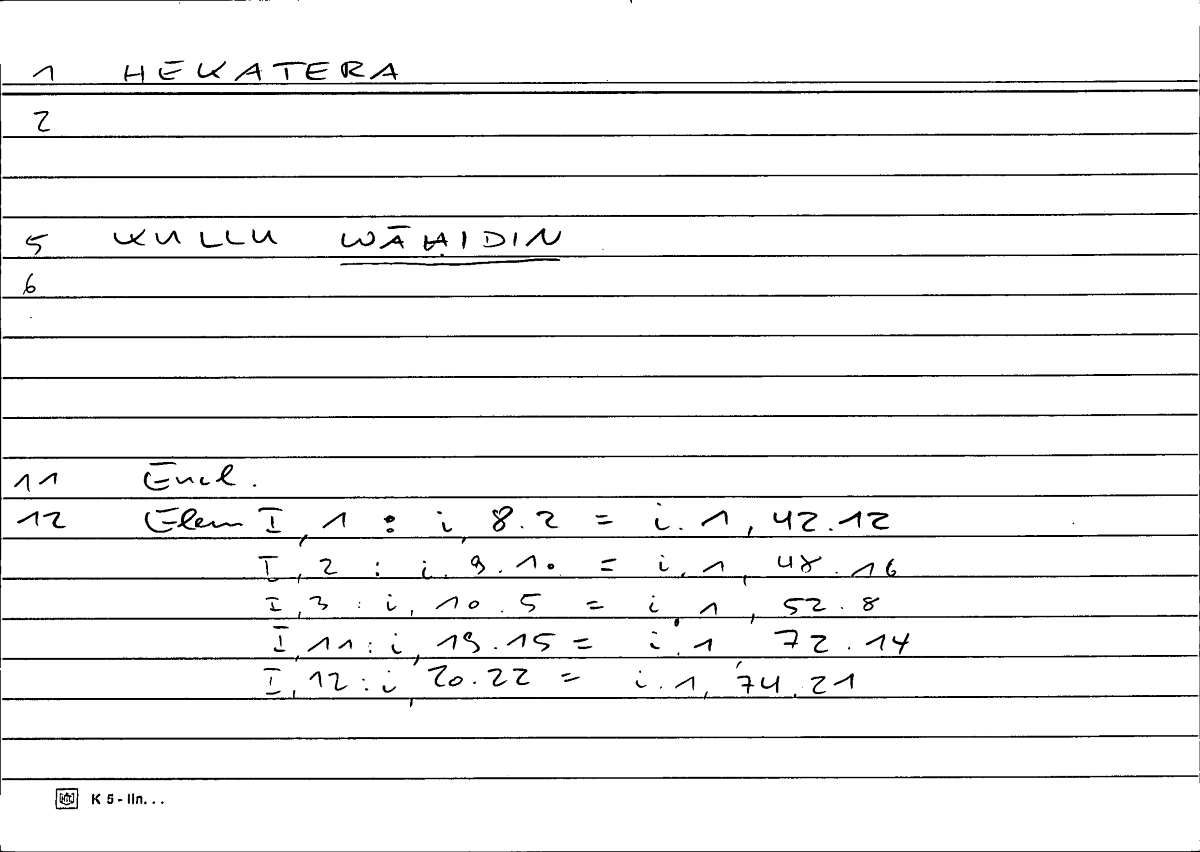 1 HEKATERA
2
5 KULLU WĀḤIDIN
6
11 Eucl.
12 Elem I, 1 : i, 8.2 = i.1, 42.12
I, 2 : i, 9.10 = i.1, 48.16
I, 3 : i, 10.5 = i.1, 52.8
I, 11 : i, 19.15 = i.1, 72.14
I, 12 : i, 20.22 = i.1, 74.21
K 5 - lin. . .